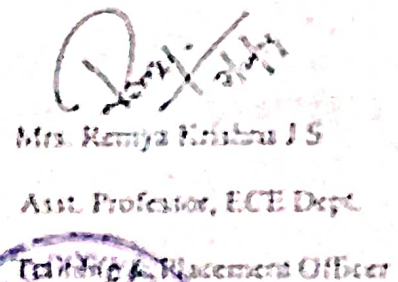 Mrs. Remya Krishna J S
Asst. Professor, ECE Dept.
Training & Placement Officer